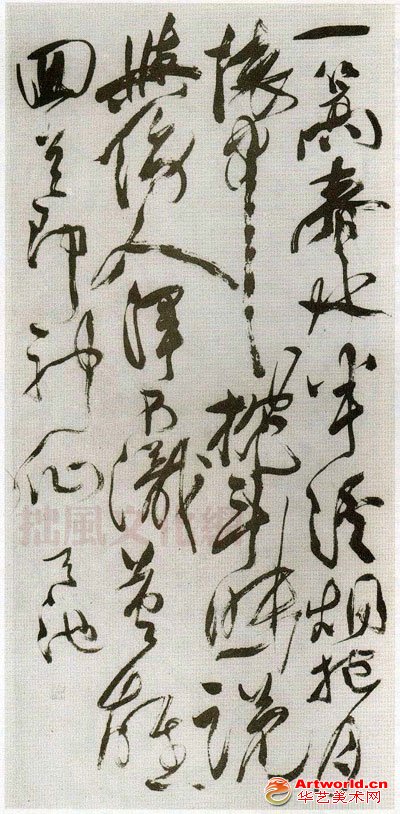 一篙春水半溪烟抱月
懷中枕斗眠說
與傍人渾不識英雄
回首即神仙 天池
拙風文化網
Artworld.cn
华艺美术网